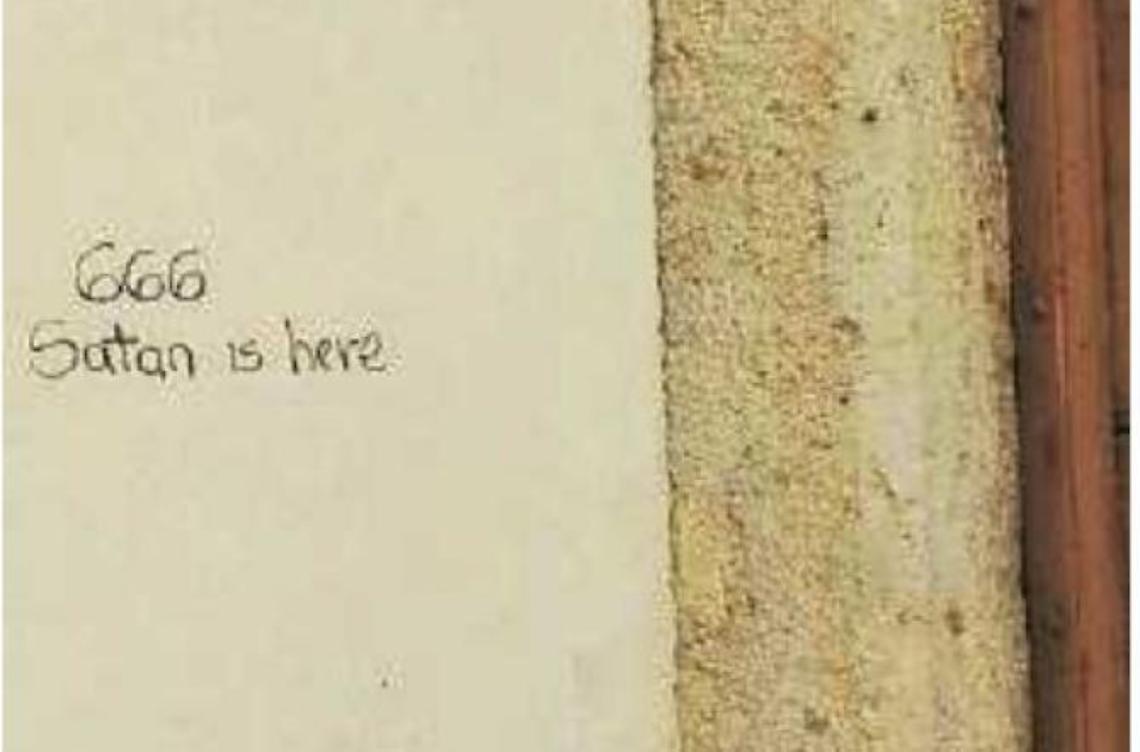 666
Satan is here